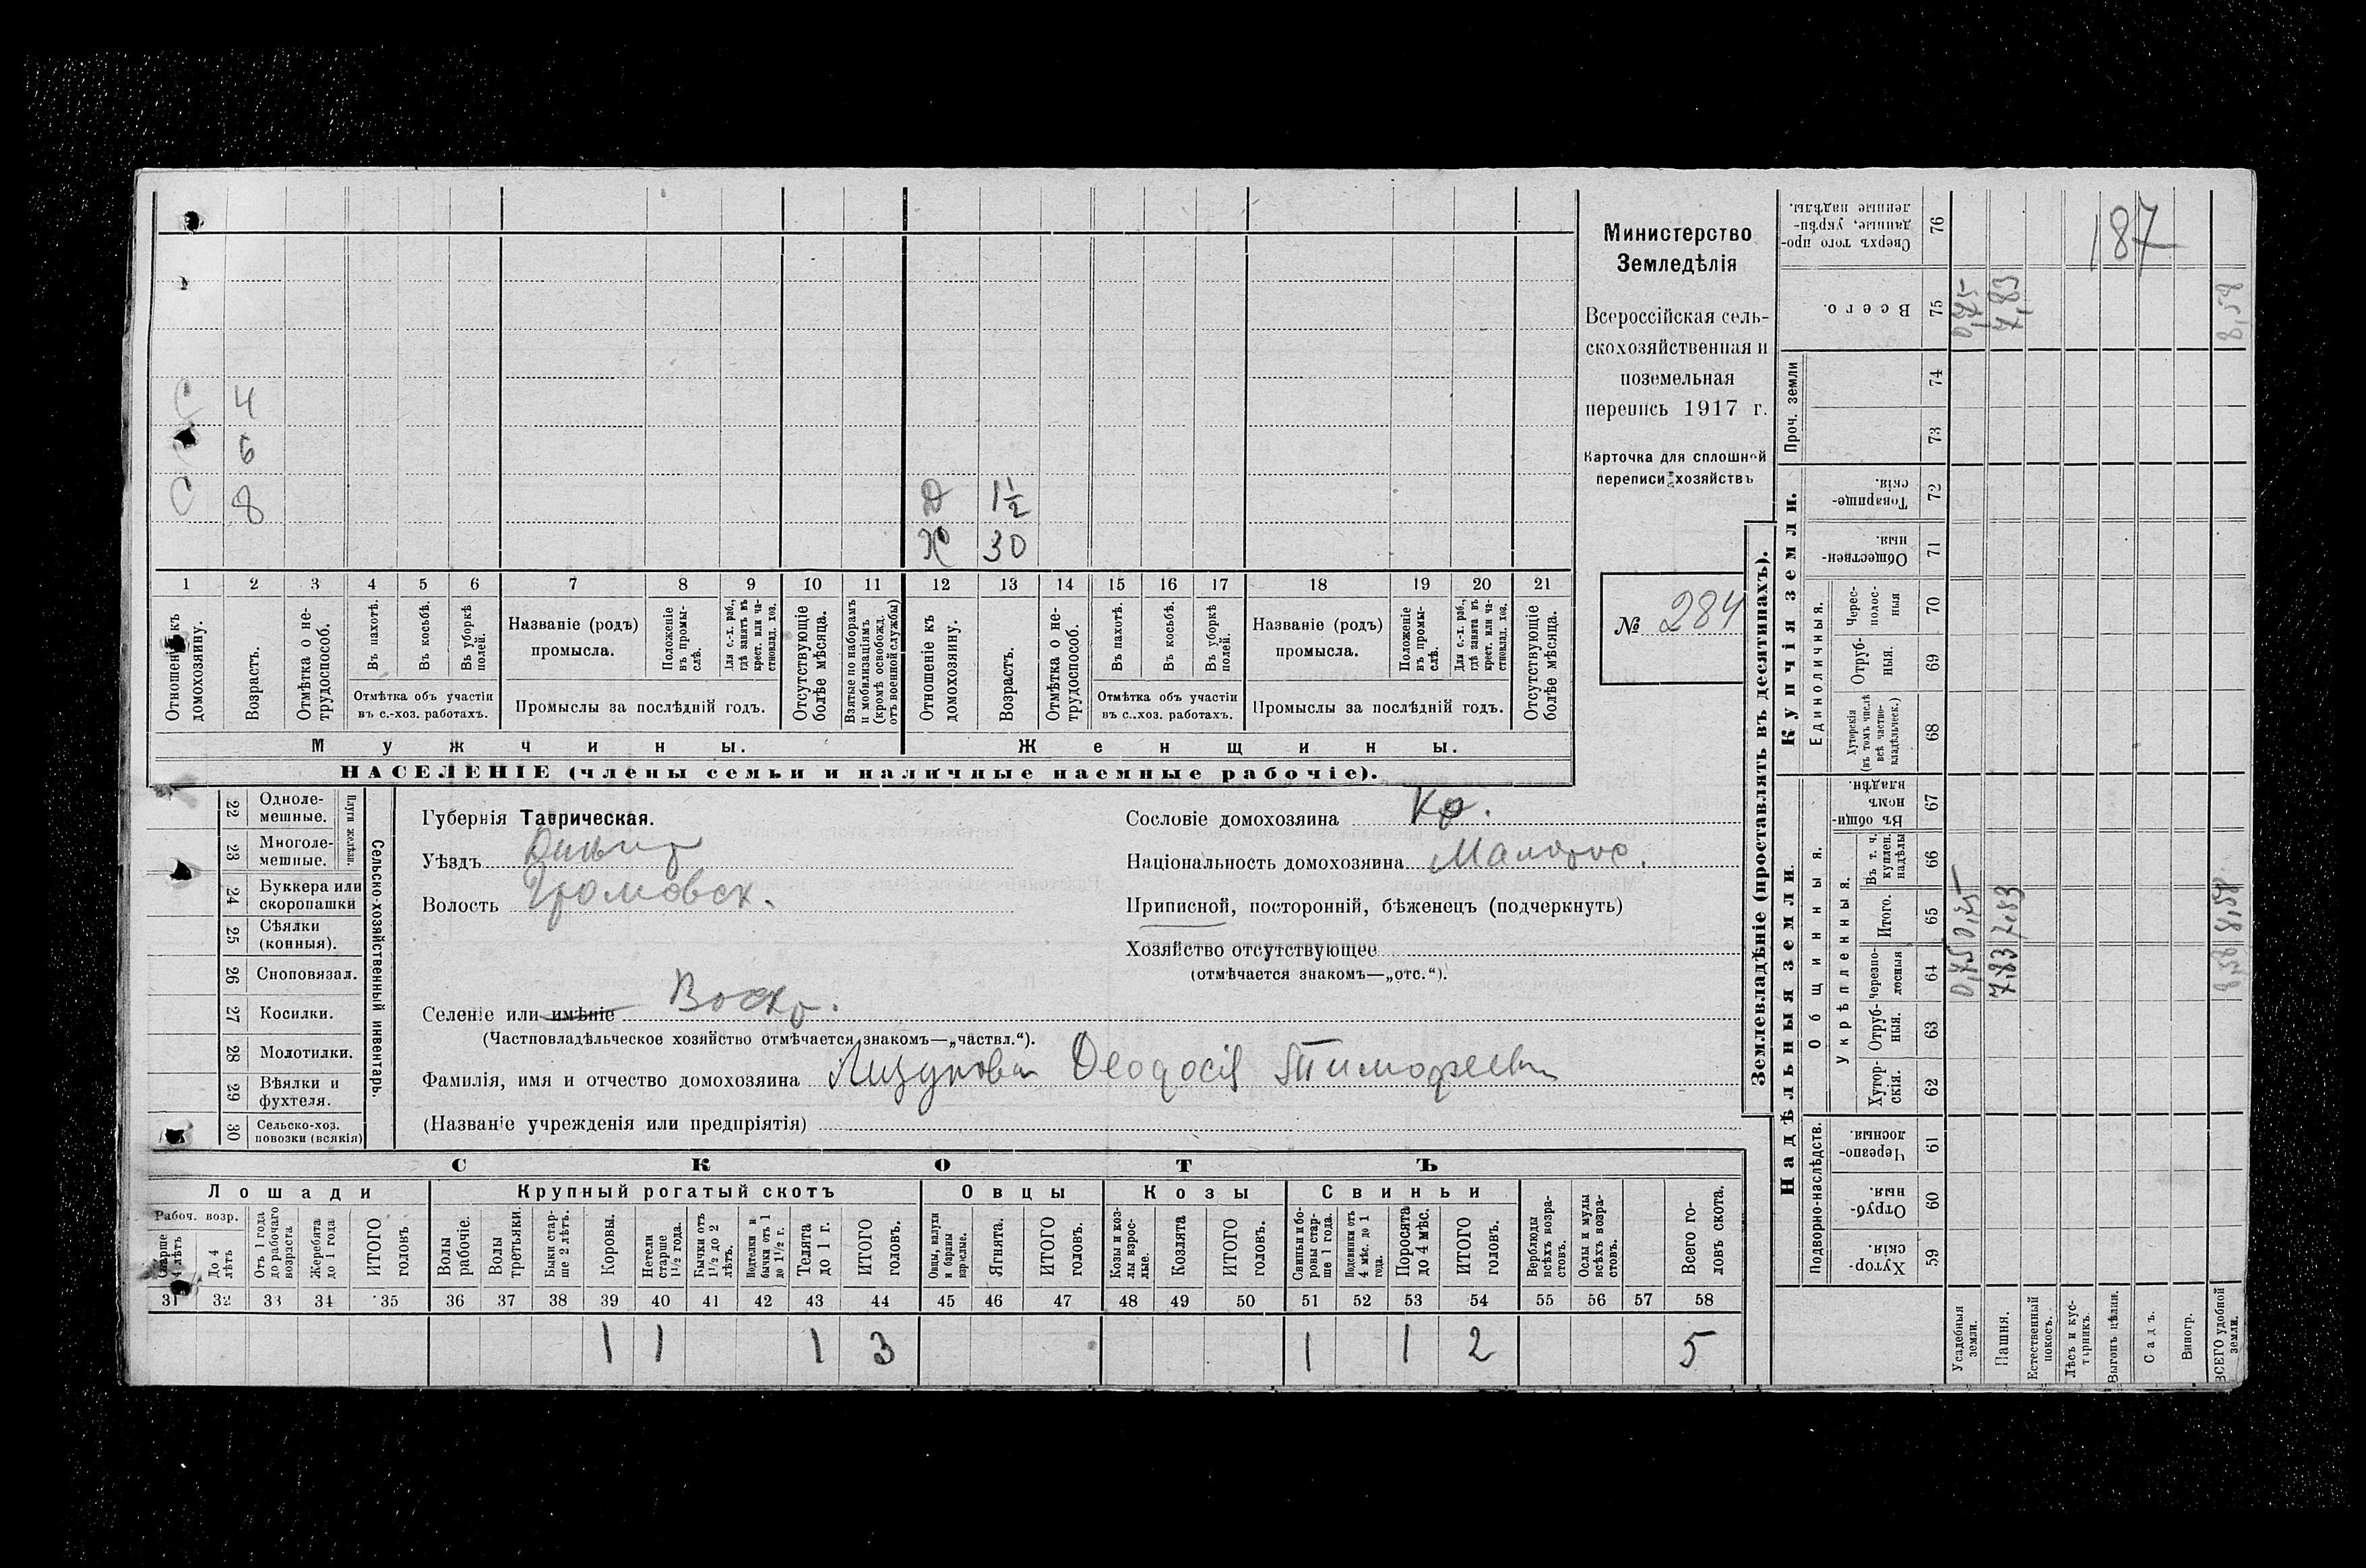 187
С 4
С 6
С 8 Д 1½
Ж 30
1 2 3 4 5 6 7 8 9 10 11 12 13 14 15 16 17 18 19 20 21
Отношеніе къ домохозяину.
Возрастъ.
Отмѣтка о нетрудоспособ.
Въ пахотѣ.
Въ косьбѣ.
Въ уборкѣ полей.
Отмѣтка объ участіи въ с.-хоз. работахъ.
Названіе (родъ) промысла.
Положеніе въ промыслѣ.
Для с.-х. раб., гдѣ занятъ въ крест. или частновлад. хоз.
Промыслы за послѣдній годъ.
Отсутствующіе болѣе мѣсяца.
Взятые по наборамъ и мобилизаціямъ (кромѣ освобожд. отъ военной службы)
Отношеніе къ домохозяину.
Возрастъ.
Отмѣтка о нетрудоспособ.
Въ пахотѣ.
Въ косьбѣ.
Въ уборкѣ полей.
Отмѣтка объ участіи въ с..хоз. работахъ.
Названіе (родъ) промысла.
Положеніе въ промыслѣ.
Для с.-х. раб., гдѣ занята въ крест. или частновлад. хоз.
Промыслы за послѣдній годъ.
Отсутствующіе болѣе мѣсяца.
Мужчины.
Женщины.
НАСЕЛЕНІЕ (члены семьи и наличные наемные рабочіе).
Министерство
Земледѣлія
Всероссійская сель-
скохозяйственная и
поземельная
перепись 1917 г.
Карточка для сплошной
переписи хозяйствъ
№ 284
Сельско-хозяйственный инвентарь.
Плуги желѣзн.
22 Одноле-
мешные.
23 Многоле-
мешные.
24 Буккера или
скоропашки
25 Сѣялки
(конныя).
26 Сноповязал.
27 Косилки.
28 Молотилки.
29 Вѣялки и
фухтеля.
30 Сельско-хоз.
повозки (всякія)
Губернія Таврическая.
Уѣздъ
Волость Громовск.
Селеніе или имѣніе Воскр.
(Частновладѣльческое хозяйство отмѣчается знакомъ—„частвл.“).
Фамилія, имя и отчество домохозяина Феодосій Тимофеевич
(Названіе учрежденія или предпріятія)
Сословіе домохозяина Кр.
Національность домохозяина Малорос.
Приписной, посторонній, бѣженецъ (подчеркнуть)
Хозяйство отсутствующее
(отмѣчается знакомъ—„отс.“).
СКОТЪ
Лошади
Крупный рогатый скотъ
Овцы
Козы
Свиньи
Рабоч. возр.
Старше 4 лѣтъ
До 4 лѣтъ
Отъ 1 года до рабочаго возраста
Жеребята до 1 года
ИТОГО головъ
Волы рабочіе.
Волы третьяки.
Быки старше 2 лѣтъ.
Коровы.
Нетели старше 1½ года.
Бычки отъ 1½ до 2 лѣтъ.
Подтелки и бычки отъ 1 до 1½ г.
Телята до 1 г.
ИТОГО головъ.
Овцы, валухи и бараны взрослые.
Ягнята.
ИТОГО головъ.
Козы и козлы взрослые.
Козлята
ИТОГО головъ.
Свиньи и боровы старше 1 года.
Подсвинки отъ 4 мѣс. до 1 года.
Поросята до 4 мѣс.
ИТОГО головъ.
Верблюды всѣхъ возрастовъ.
Ослы и мулы всѣхъ возрастовъ.
Всего головъ скота.
31 32 33 34 35 36 37 38 39 40 41 42 43 44 45 46 47 48 49 50 51 52 53 54 55 56 57 58
1 1 1 3 1 1 2 5
Землевладѣніе (проставлять въ десятинахъ).
Надѣльныя земли.
Купчія земли.
Проч. земли
Подворно-наслѣдств.
Общинныя.
Укрѣпленныя.
Единоличныя.
Хуторскія. 59
Отрубныя. 60
Черезполосныя. 61
Хуторскія. 62
Отрубныя. 63
Черезполосныя 64
Итого. 65
Въ т. ч. куплен. надѣлы 66
Въ общинномъ владѣн. 67
Хуторскія (въ томъ числѣ всѣ частновладѣльческ.) 68
Отрубныя. 69
Чересполосныя 70
Общественныя. 71
Товарищескія. 72
73
74
Всего. 75
Сверхъ того проданные, укрѣпленные надѣлы. 76
Усадебныя земли. 0,75 0,75 0,75
Пашня. 7,83 7,83 7,83
Естественный покосъ.
Лѣсъ и кустарникъ.
Выгонъ цѣлин.
Садъ.
Виногр.
ВСЕГО удобной земли. 8,58 8,58 8,58